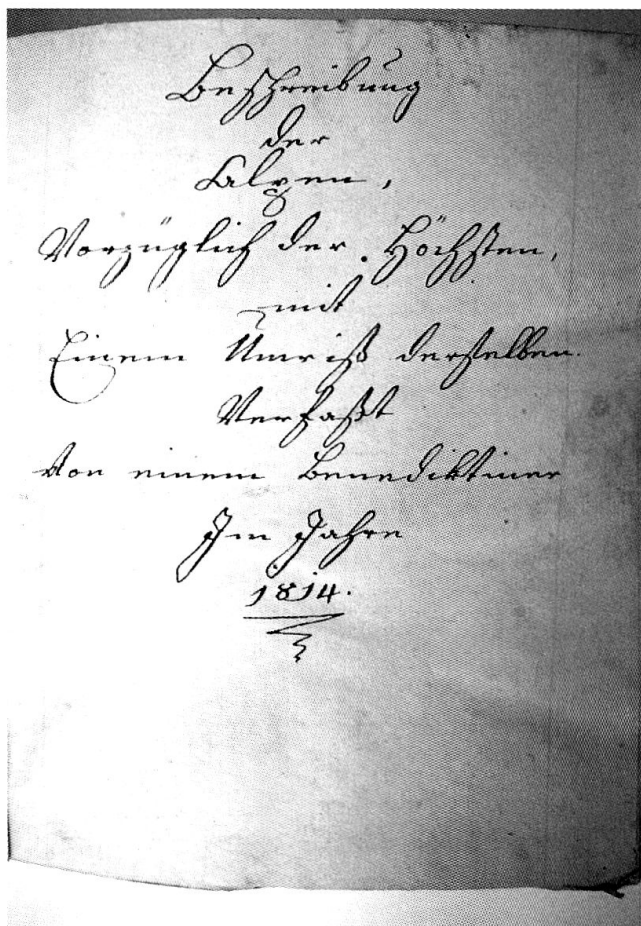 Beschreibung
der
Alpen,
Vorzüglich der Höchsten,
mit
Einem Umriß derselben.
Verfaßt
Von einem Benediktiner
Im Jahre
1814.